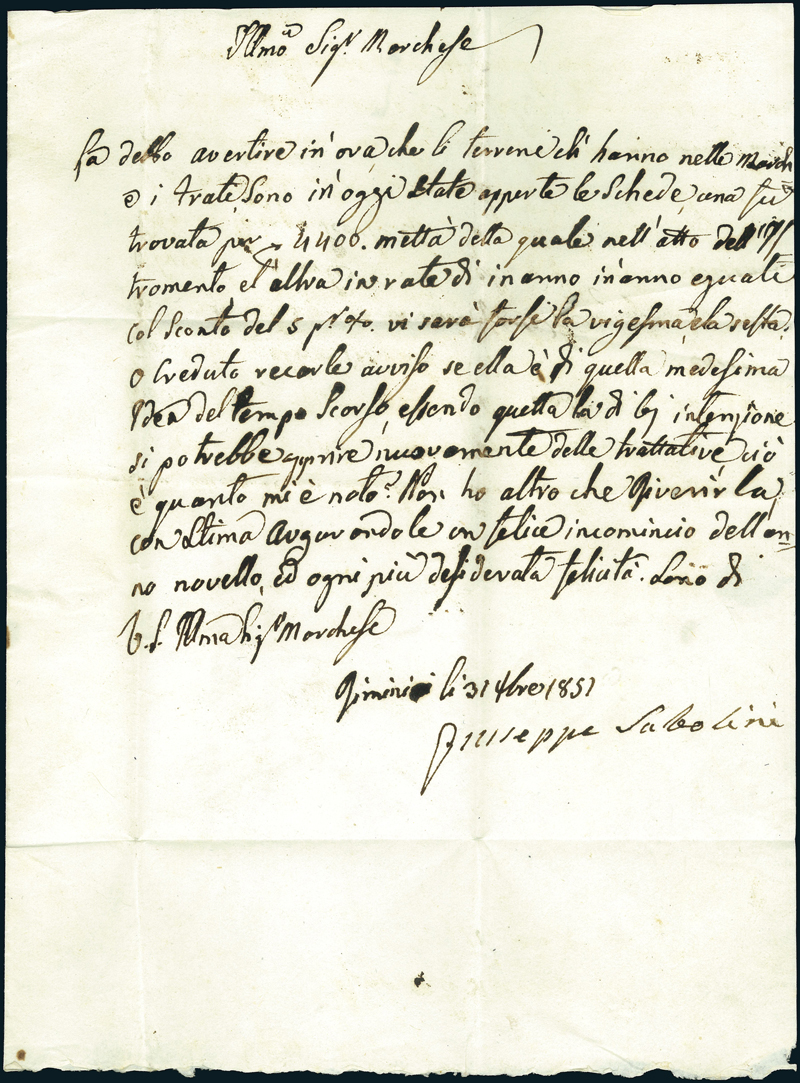 Illmo Sigr Marchese
La debbo avertire in'ora che li terreni di hanno nelle
e i trate, sono in'oggi state apperte le Schede, una fù
trovata per 4400. mettà della quale nell'atto dell'Is
tromento e l'altra in rate di in anno in'anno eguali
col Sconto del 5 pr %. vi sarà forse la vigesma e la sesta.
O creduto recarle avviso se ella è di quella medesima
Idea del tempo Scorso, essendo quella là di lej intenzione
si potrebbe apprire nuovamente delle trattative, ciò
è quanto mi è noto. Non ho altro che Riverirla
con Stima Augurandole un felice incomincio dell'an=
no novello, Ed ogni più desiderata felicità. Sono di
V. S. Illma Sigr Marchese
Rimini li 31 Xbre 1851
Giuseppe